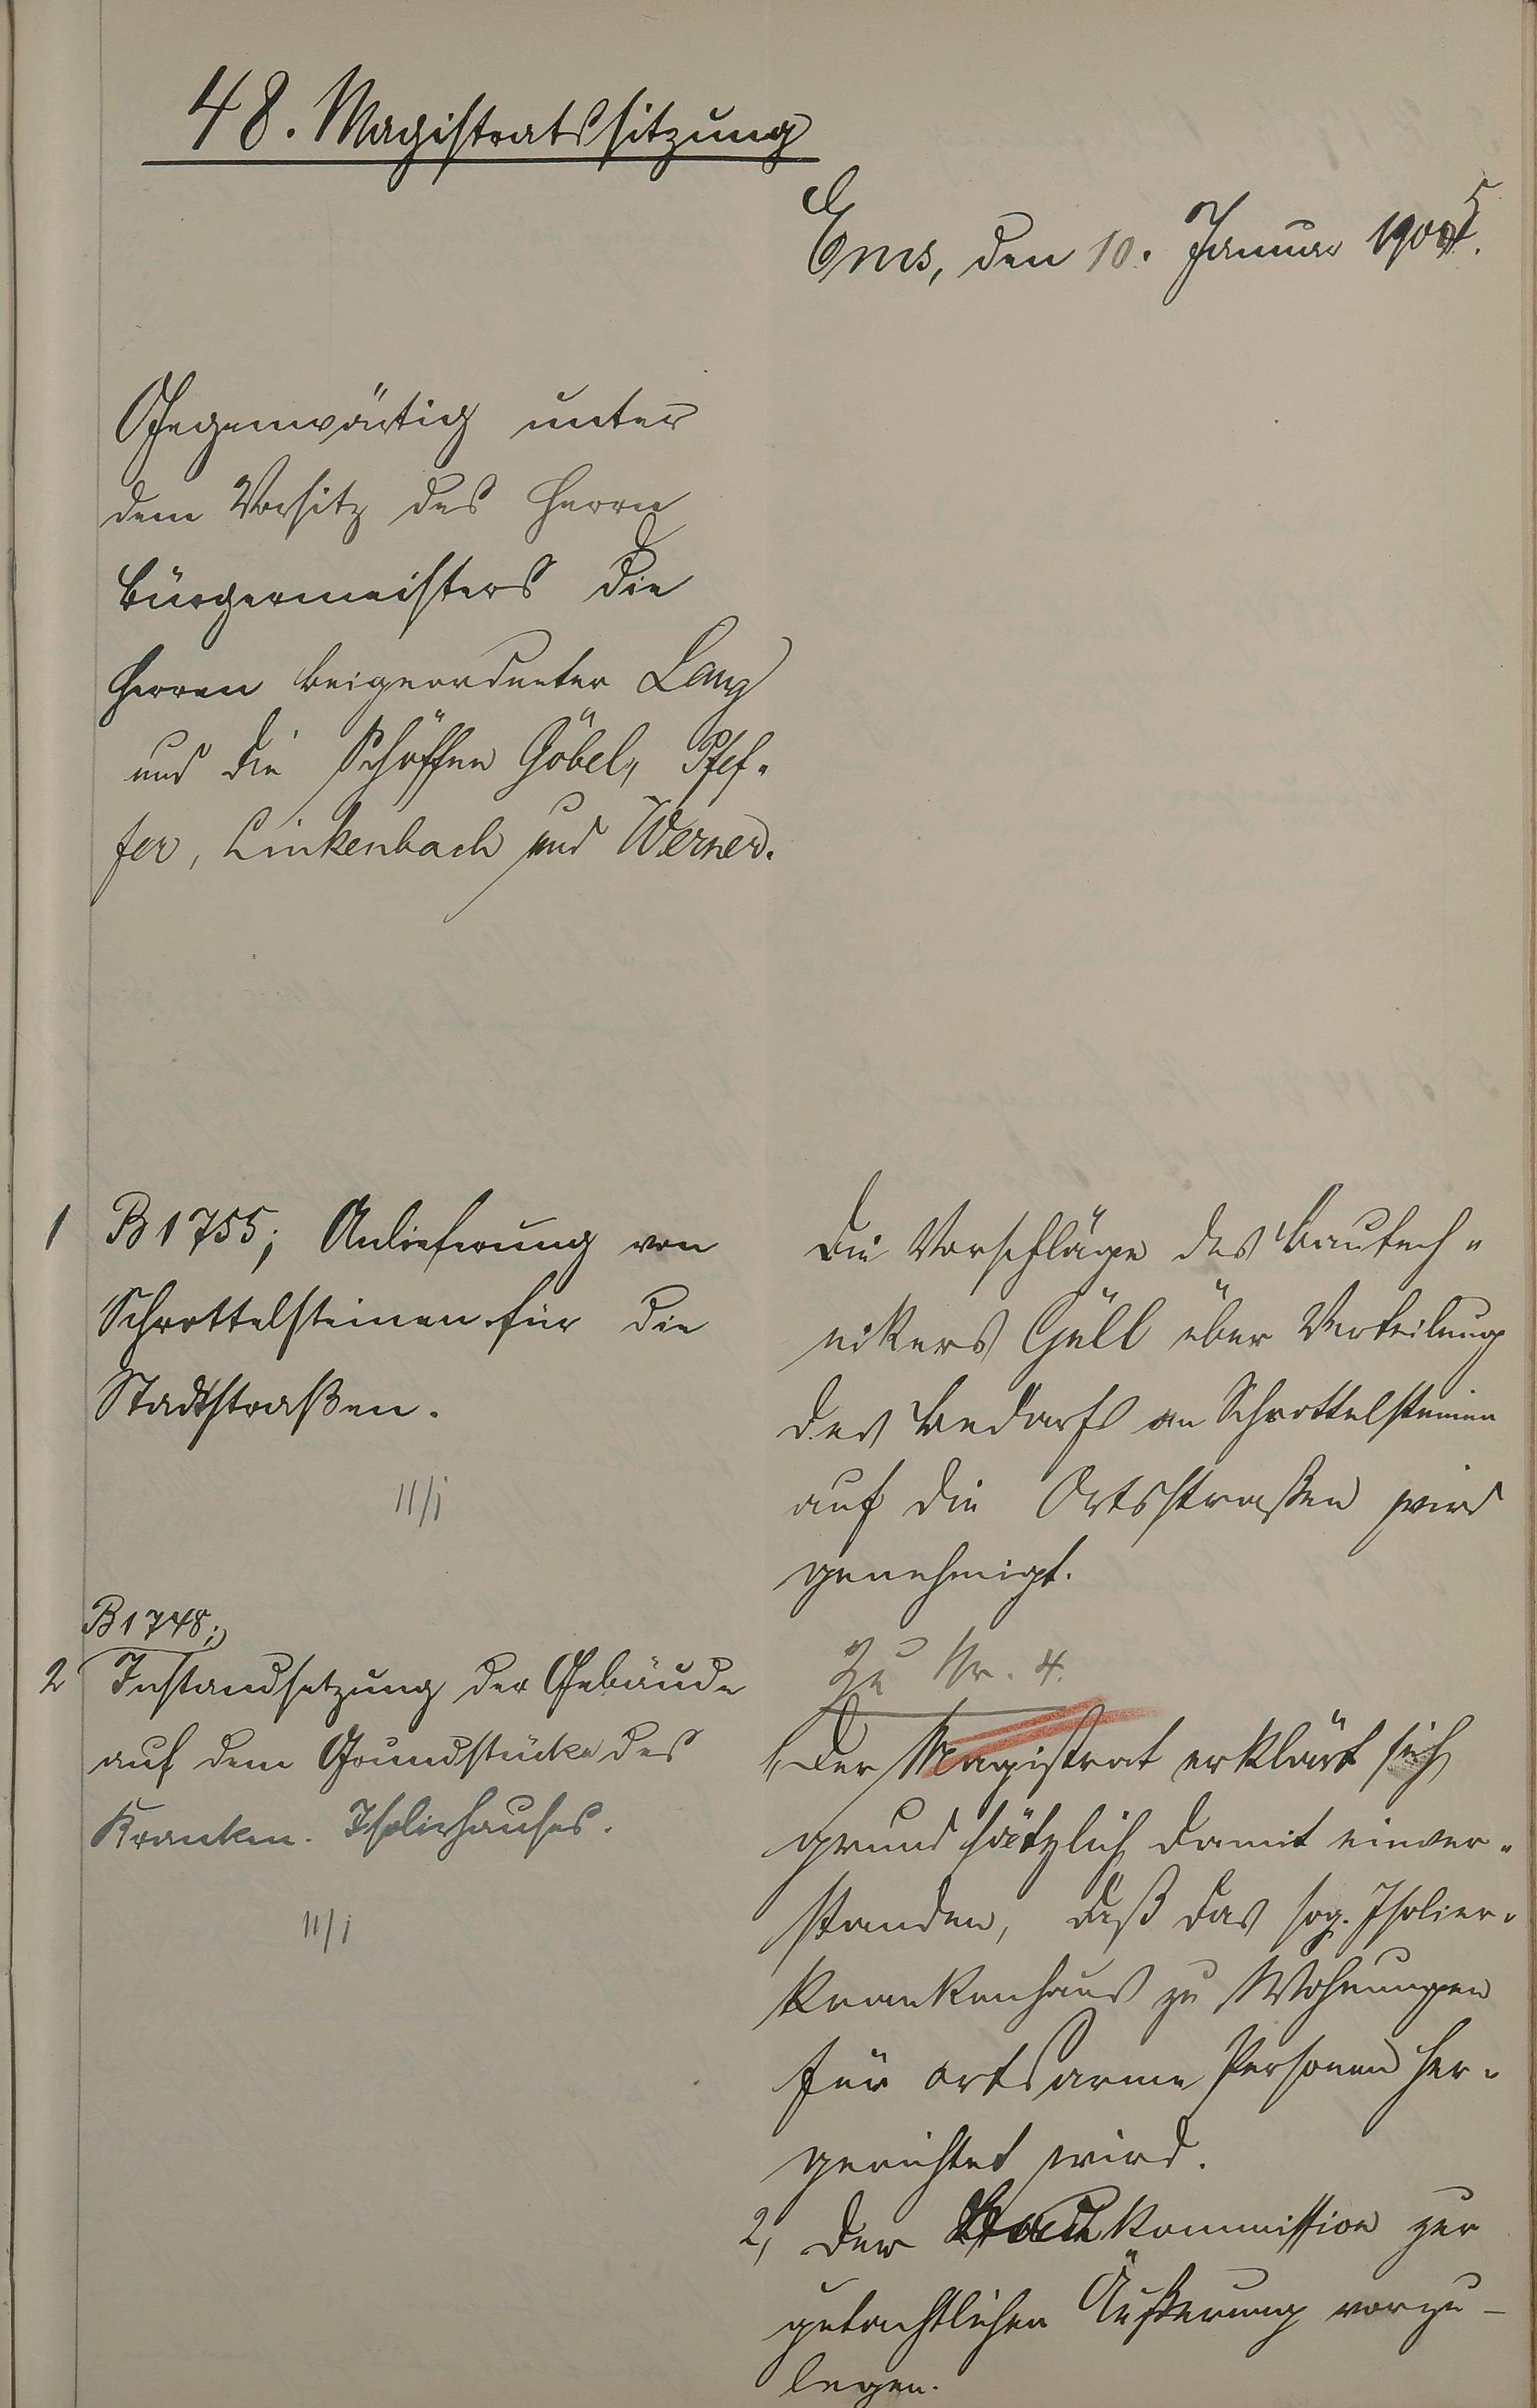 48. Magistratssitzung
Ems, den 10. Januar 1905.
Gegenwärtig unter
dem Vorsitz des Herrn
Bürgermeisters die
Herren Beigeordneter Lang
und die Schöffen Göbel, Pfef-
fer, Linkenbach und Werner.
1 B 1755; Anlieferung von
Schrottelsteinen für die
Stadtstraßen.
11/1
Die Vorschläge des Bautech-
nikers Güll über Verteilung
des Bedarfs an Schrottelsteinen
auf die Ortsstraßen wird
genehmigt.
B 1748;
2 Instandsetzung der Gebäude
auf dem Grundstücke des
Kranken-Isolirhauses.
11/1
Zu Nr. 4.
1, Der Magistrat erklärt sich
grundsätzlich damit einver-
standen, daß das sog. Isolier-
krankenhaus zu Wohnungen
für ortsarme Personen her-
gerichtet wird.
2, Der kommission zur
gutachtlichen Äußerung vorzu-
legen.